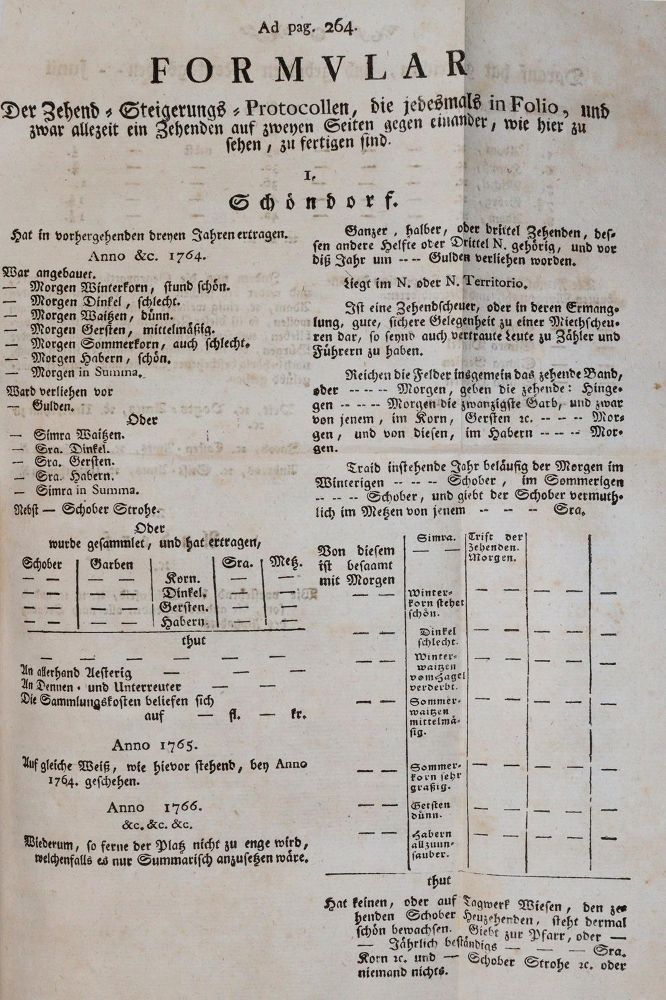 Ad pag. 264.
FORMVLAR
Der Zehend-Steigerungs-Protocollen, die jedesmals in Folio, und
zwar allezeit ein Zehenden auf zweyen Seiten gegen einander, wie hier zu
sehen, zu fertigen sind.
I.
Schöndorf.
Hat in vorhergehenden dreyen Jahren ertragen.
Anno &c. 1764.
War angebauet.
— Morgen Winterkorn, stund schön.
— Morgen Dinkel, schlecht.
— Morgen Waitzen, dünn.
— Morgen Gersten, mittelmäßig.
— Morgen Sommerkorn, auch schlecht.
— Morgen Habern, schön.
— Morgen in Summa.
Ward verliehen vor
— Gulden.
Oder
— Simra Waitzen.
— Sra. Dinkel.
— Sra. Gersten.
— Sra. Habern.
— Simra in Summa.
Nebst — Schober Strohe.
Oder
wurde gesammlet, und hat ertragen,
Schober Garben Sra. Metz.
— — — — Korn. — —
— — — — Dinkel. — —
— — — — Gersten. — —
— — — — Habern. — —
thut
— — — — — — — —
An allerhand Aesterig — — —
An Dennen- und Unterreuter — —
Die Sammlungskosten beliefen sich
auf — fl. — kr.
Anno 1765.
Auf gleiche Weiß, wie hievor stehend, bey Anno
1764. geschehen.
Anno 1766.
&c. &c. &c.
Wiederum, so ferne der Platz nicht zu enge wird,
welchenfalls es nur Summarisch anzusetzen wäre.
Ganzer, halber, oder drittel Zehenden, des-
sen andere Helfte oder Drittel N. gehörig, und vor
diß Jahr um --- Gulden verliehen worden.
Liegt im N. oder N. Territorio.
Ist eine Zehendscheuer, oder in deren Ermang-
lung, gute, sichere Gelegenheit zu einer Miethscheu-
ren dar, so seynd auch vertraute Leute zu Zähler und
Führern zu haben.
Reichen die Felder insgemein das zehende Band,
oder ---- Morgen, geben die zehende: Hinge-
gen ---- Morgen die zwanzigste Garb, und zwar
von jenem, im Korn, Gersten ꝛc. ---- Mor-
gen, und von diesen, im Habern ---- Mor-
gen.
Traid instehende Jahr beläufig der Morgen im
Winterigen ---- Schober, im Sommerigen
---- Schober, und giebt der Schober vermuth-
lich im Metzen von jenem — — — Sra.
Von diesem
ist besaamt
mit Morgen
Simra.
— —
Trift der
Zehenden.
Morgen.
— —
Winter-
korn stehet
schön.
— — — — —
— —
Dinkel
schlecht.
— — — — —
— —
Winter-
waitzen
vom Hagel
verderbt.
— — — — —
— —
Sommer-
waitzen
mittelmä-
ßig.
— — — — —
— —
Sommer-
korn sehr
graßig.
— — — — —
— —
Gersten
dünn.
— — — — —
— —
Habern
allzuun-
sauber.
— — — — —
thut
Hat keinen, oder auf Tagwerk Wiesen, den ze-
henden Schober Heuzehenden, steht dermal
schön bewachsen. Giebt zur Pfarr, oder —
— Jährlich beständigs — — — Sra.
Korn ꝛc. und — Schober Strohe ꝛc. oder
niemand nichts.